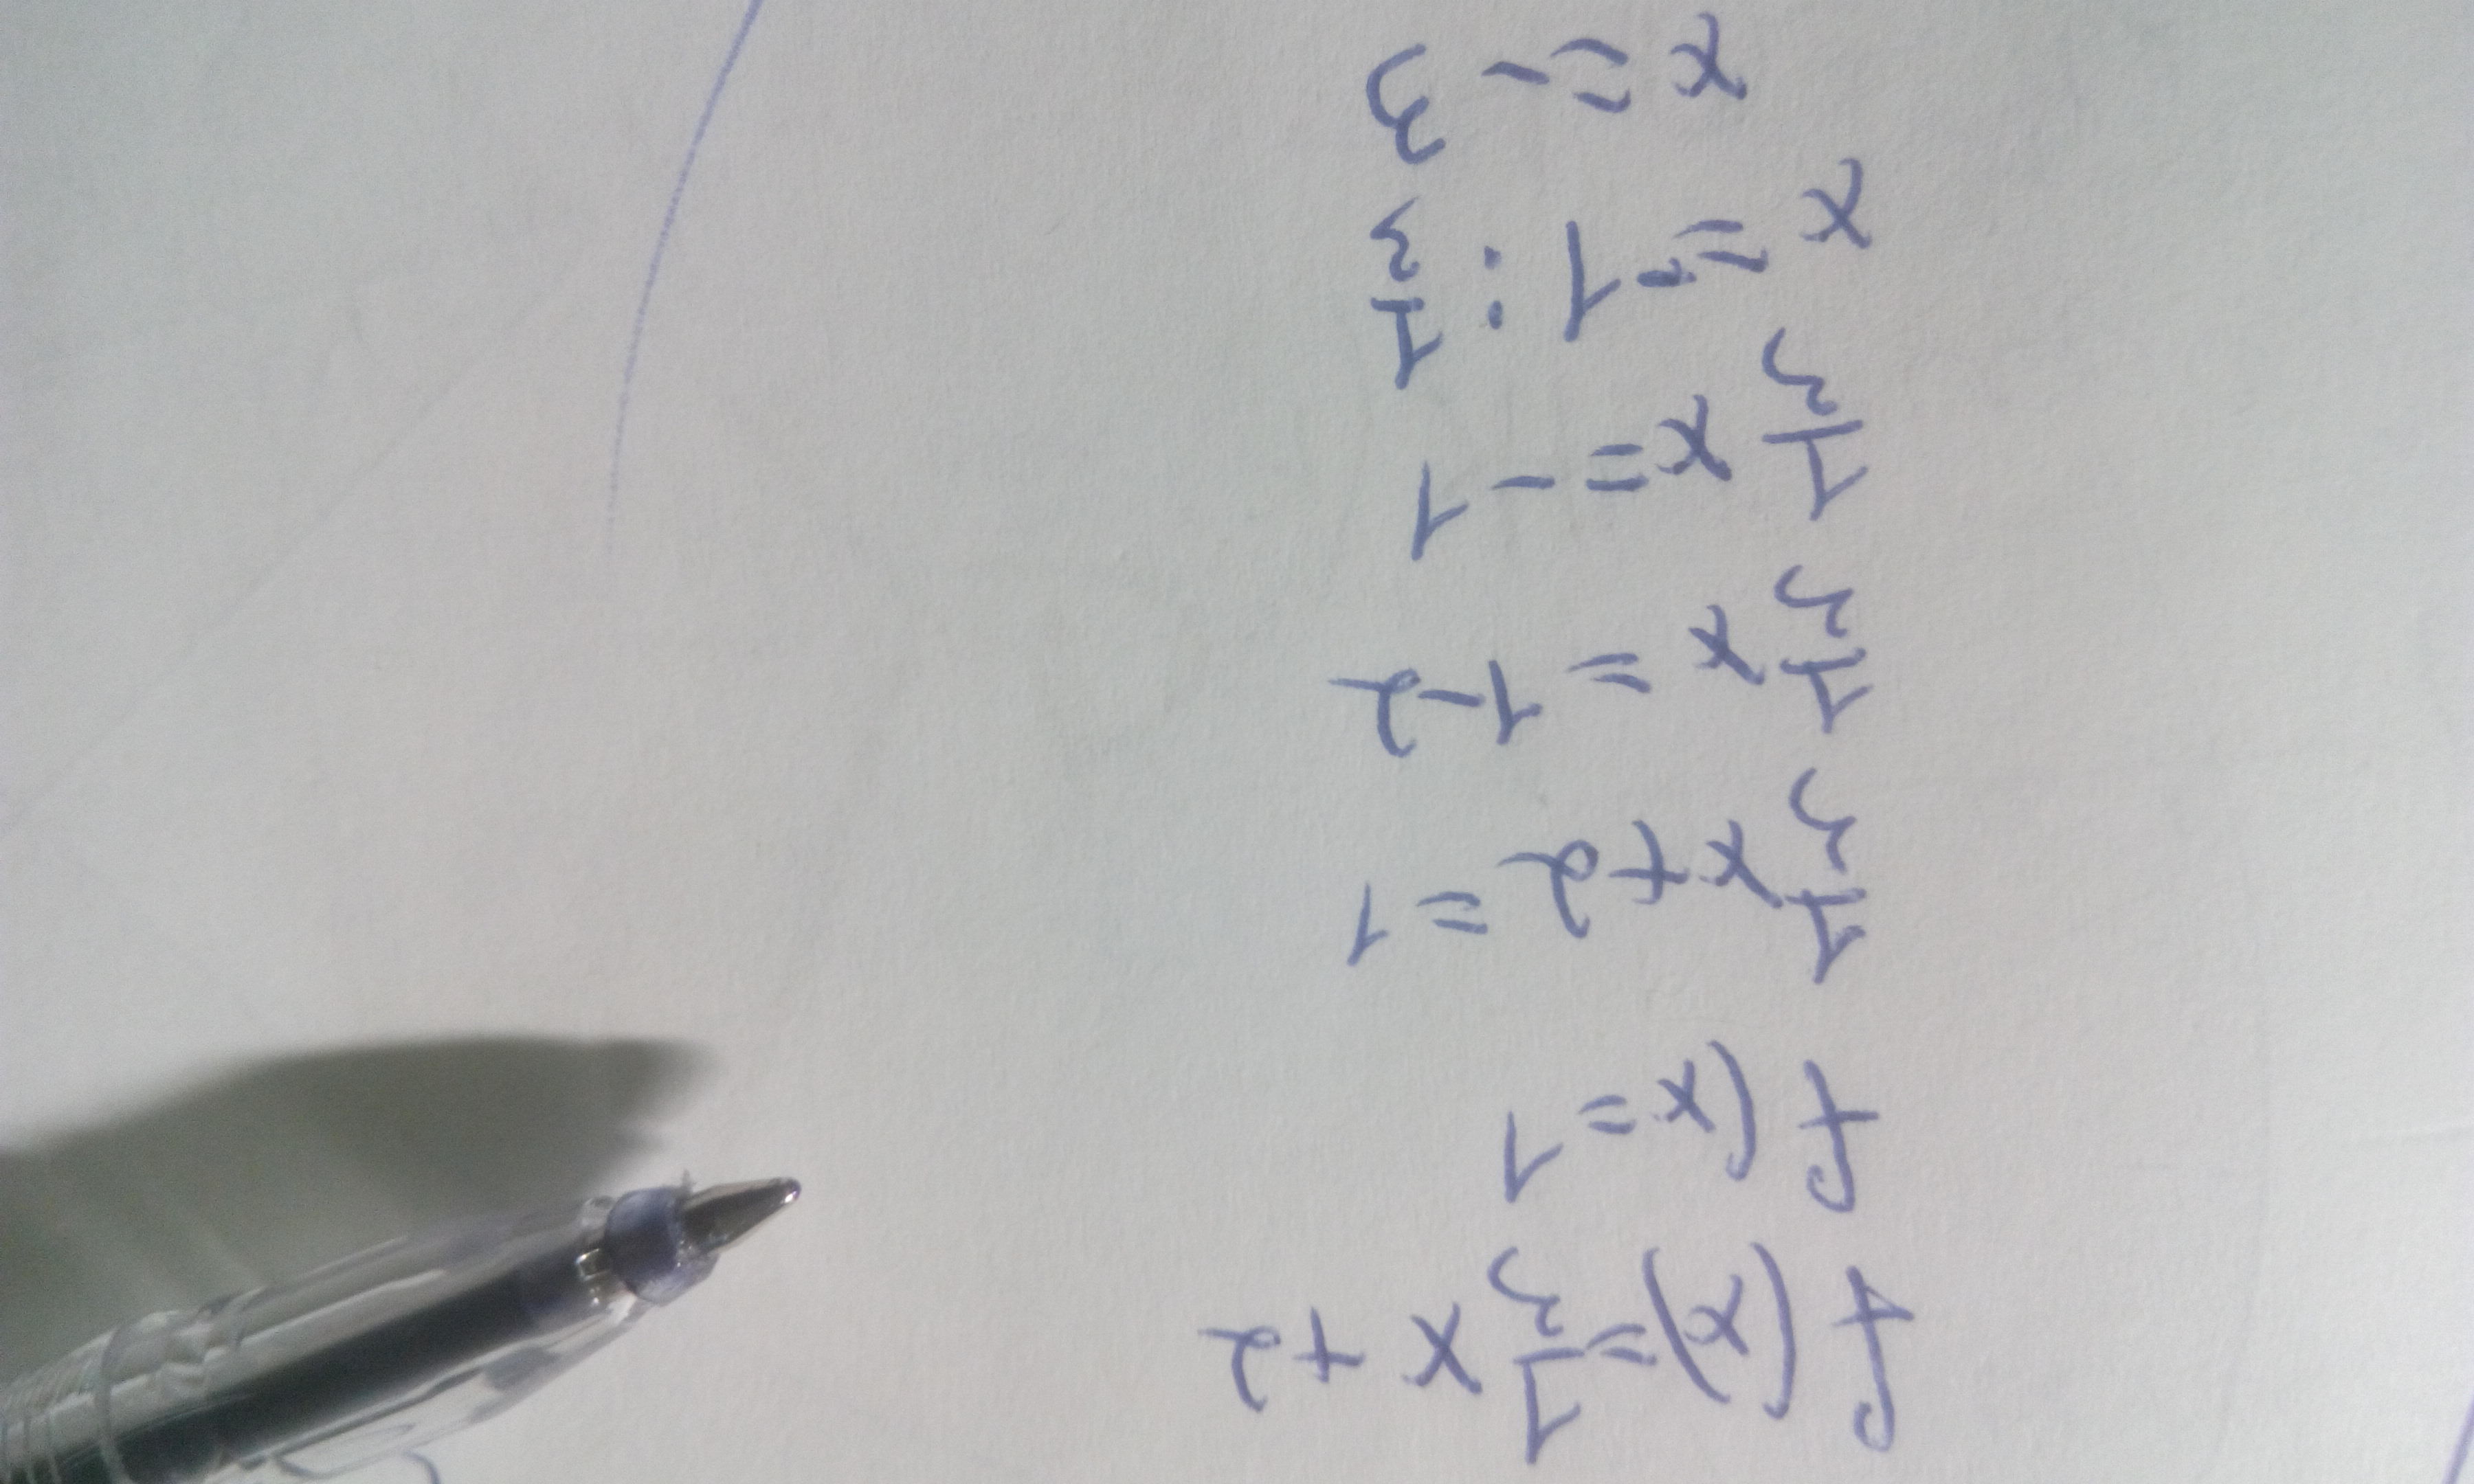 f(x)=1/3 x+2
f(x=1
1/3 x+2=1
1/3 x=1-2
1/3 x=-1
x=-1:1/3
x=-3